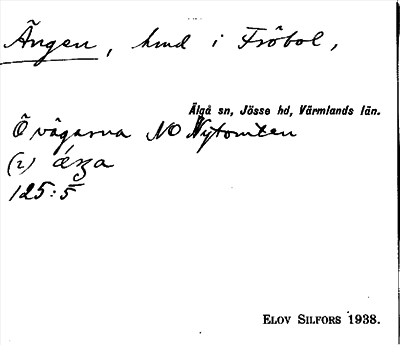 Ängen, hmd i Fröbol,
Älgå sn, Jösse hd, Värmlands län.
Ö vägarna NO Nytomten
(2) 
125:5
ELOV SILFORS 1938.